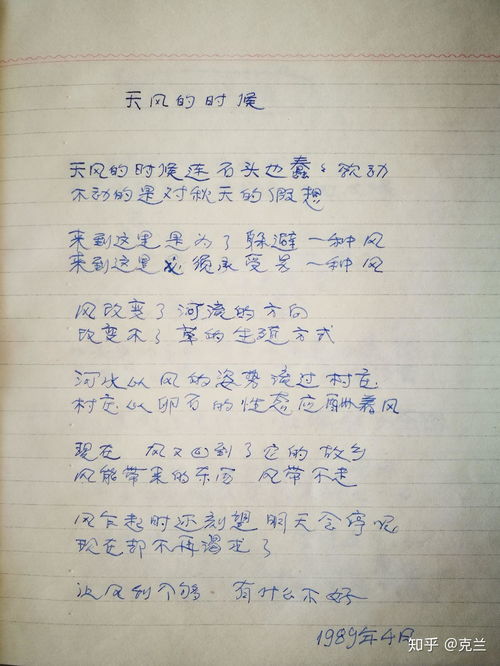 天风的时候
天风的时候连石头也蠢蠢欲动
不动的是对秋天的假想
来到这里是为了躲避一种风
来到这里必须承受另一种风
风改变了河流的方向
改变不了草的生殖方式
河水以风的姿势流过村庄
村庄以卵石的性态应酬着风
现在 风又回到了它的故乡
风能带来的东西 风带不走
风乍起时还刻望明天会停呢
现在却不再渴求了
让风刮个够 有什么不好
1989年4月
知乎 @克兰